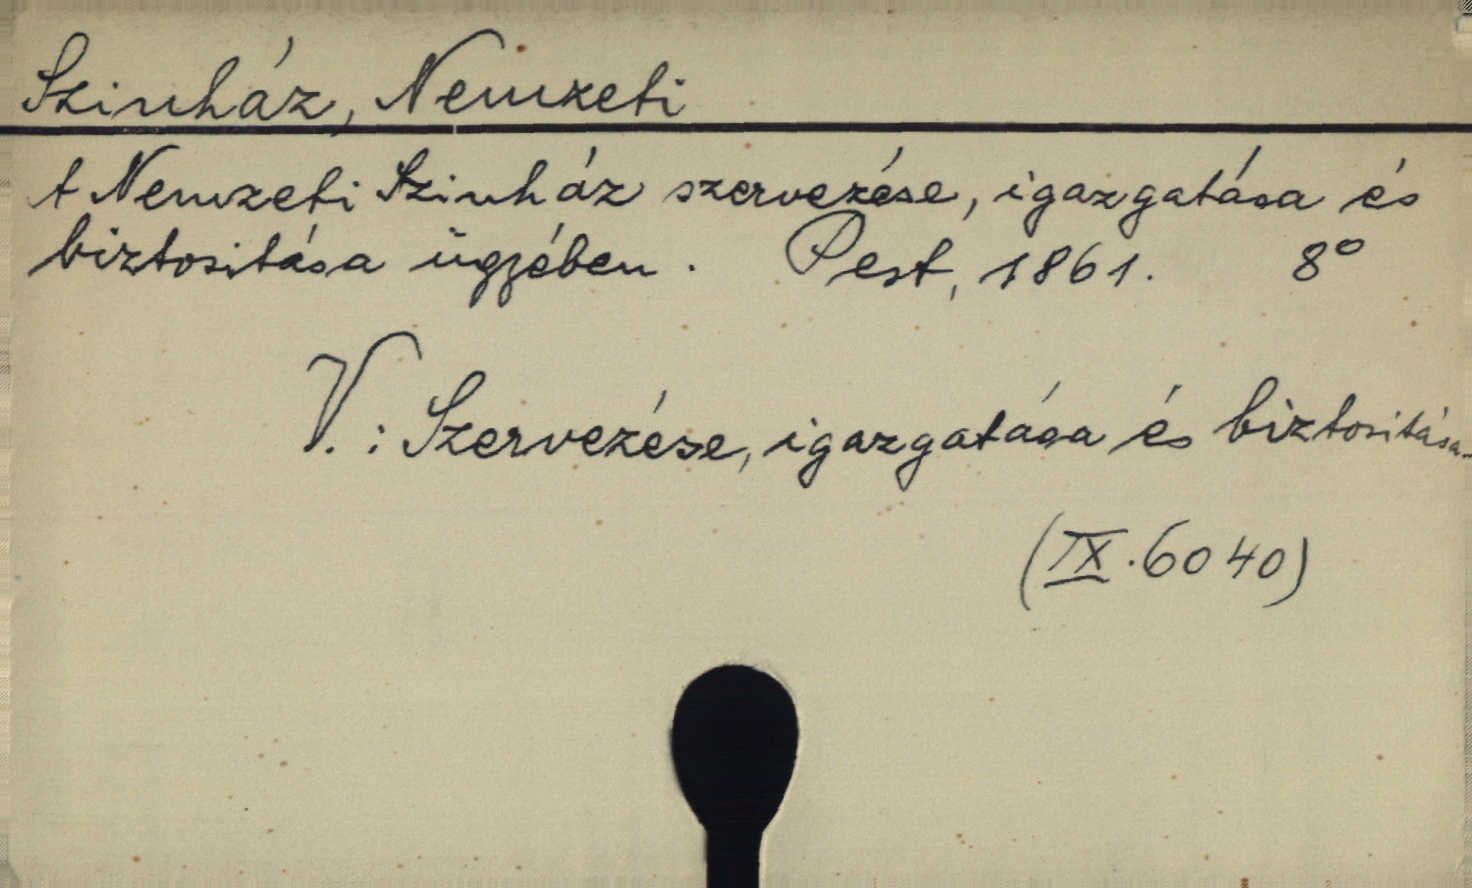 Szinház, Nemzeti
A Nemzeti Szinház szervezése, igazgatása és
biztositása ügyében. Pest, 1861. 8°
V.: Szervezése, igazgatása és biztositása.
(IX.6040)